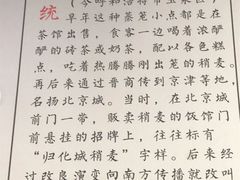 统
年这种蒸笼小点都是在
茶馆出售，食客一边喝着浓酽
酽的砖茶或奶茶，配以各色糕
点，吃着热腾腾刚出笼的稍麦。
再后来通过晋商传到京津等地，
名扬北京城。当时，在北京城
前门一带，贩卖稍麦的饭馆门
前悬挂的招牌上，往往标有
“归化城稍麦”字样。后来经
过改良演变向南方传播就改叫